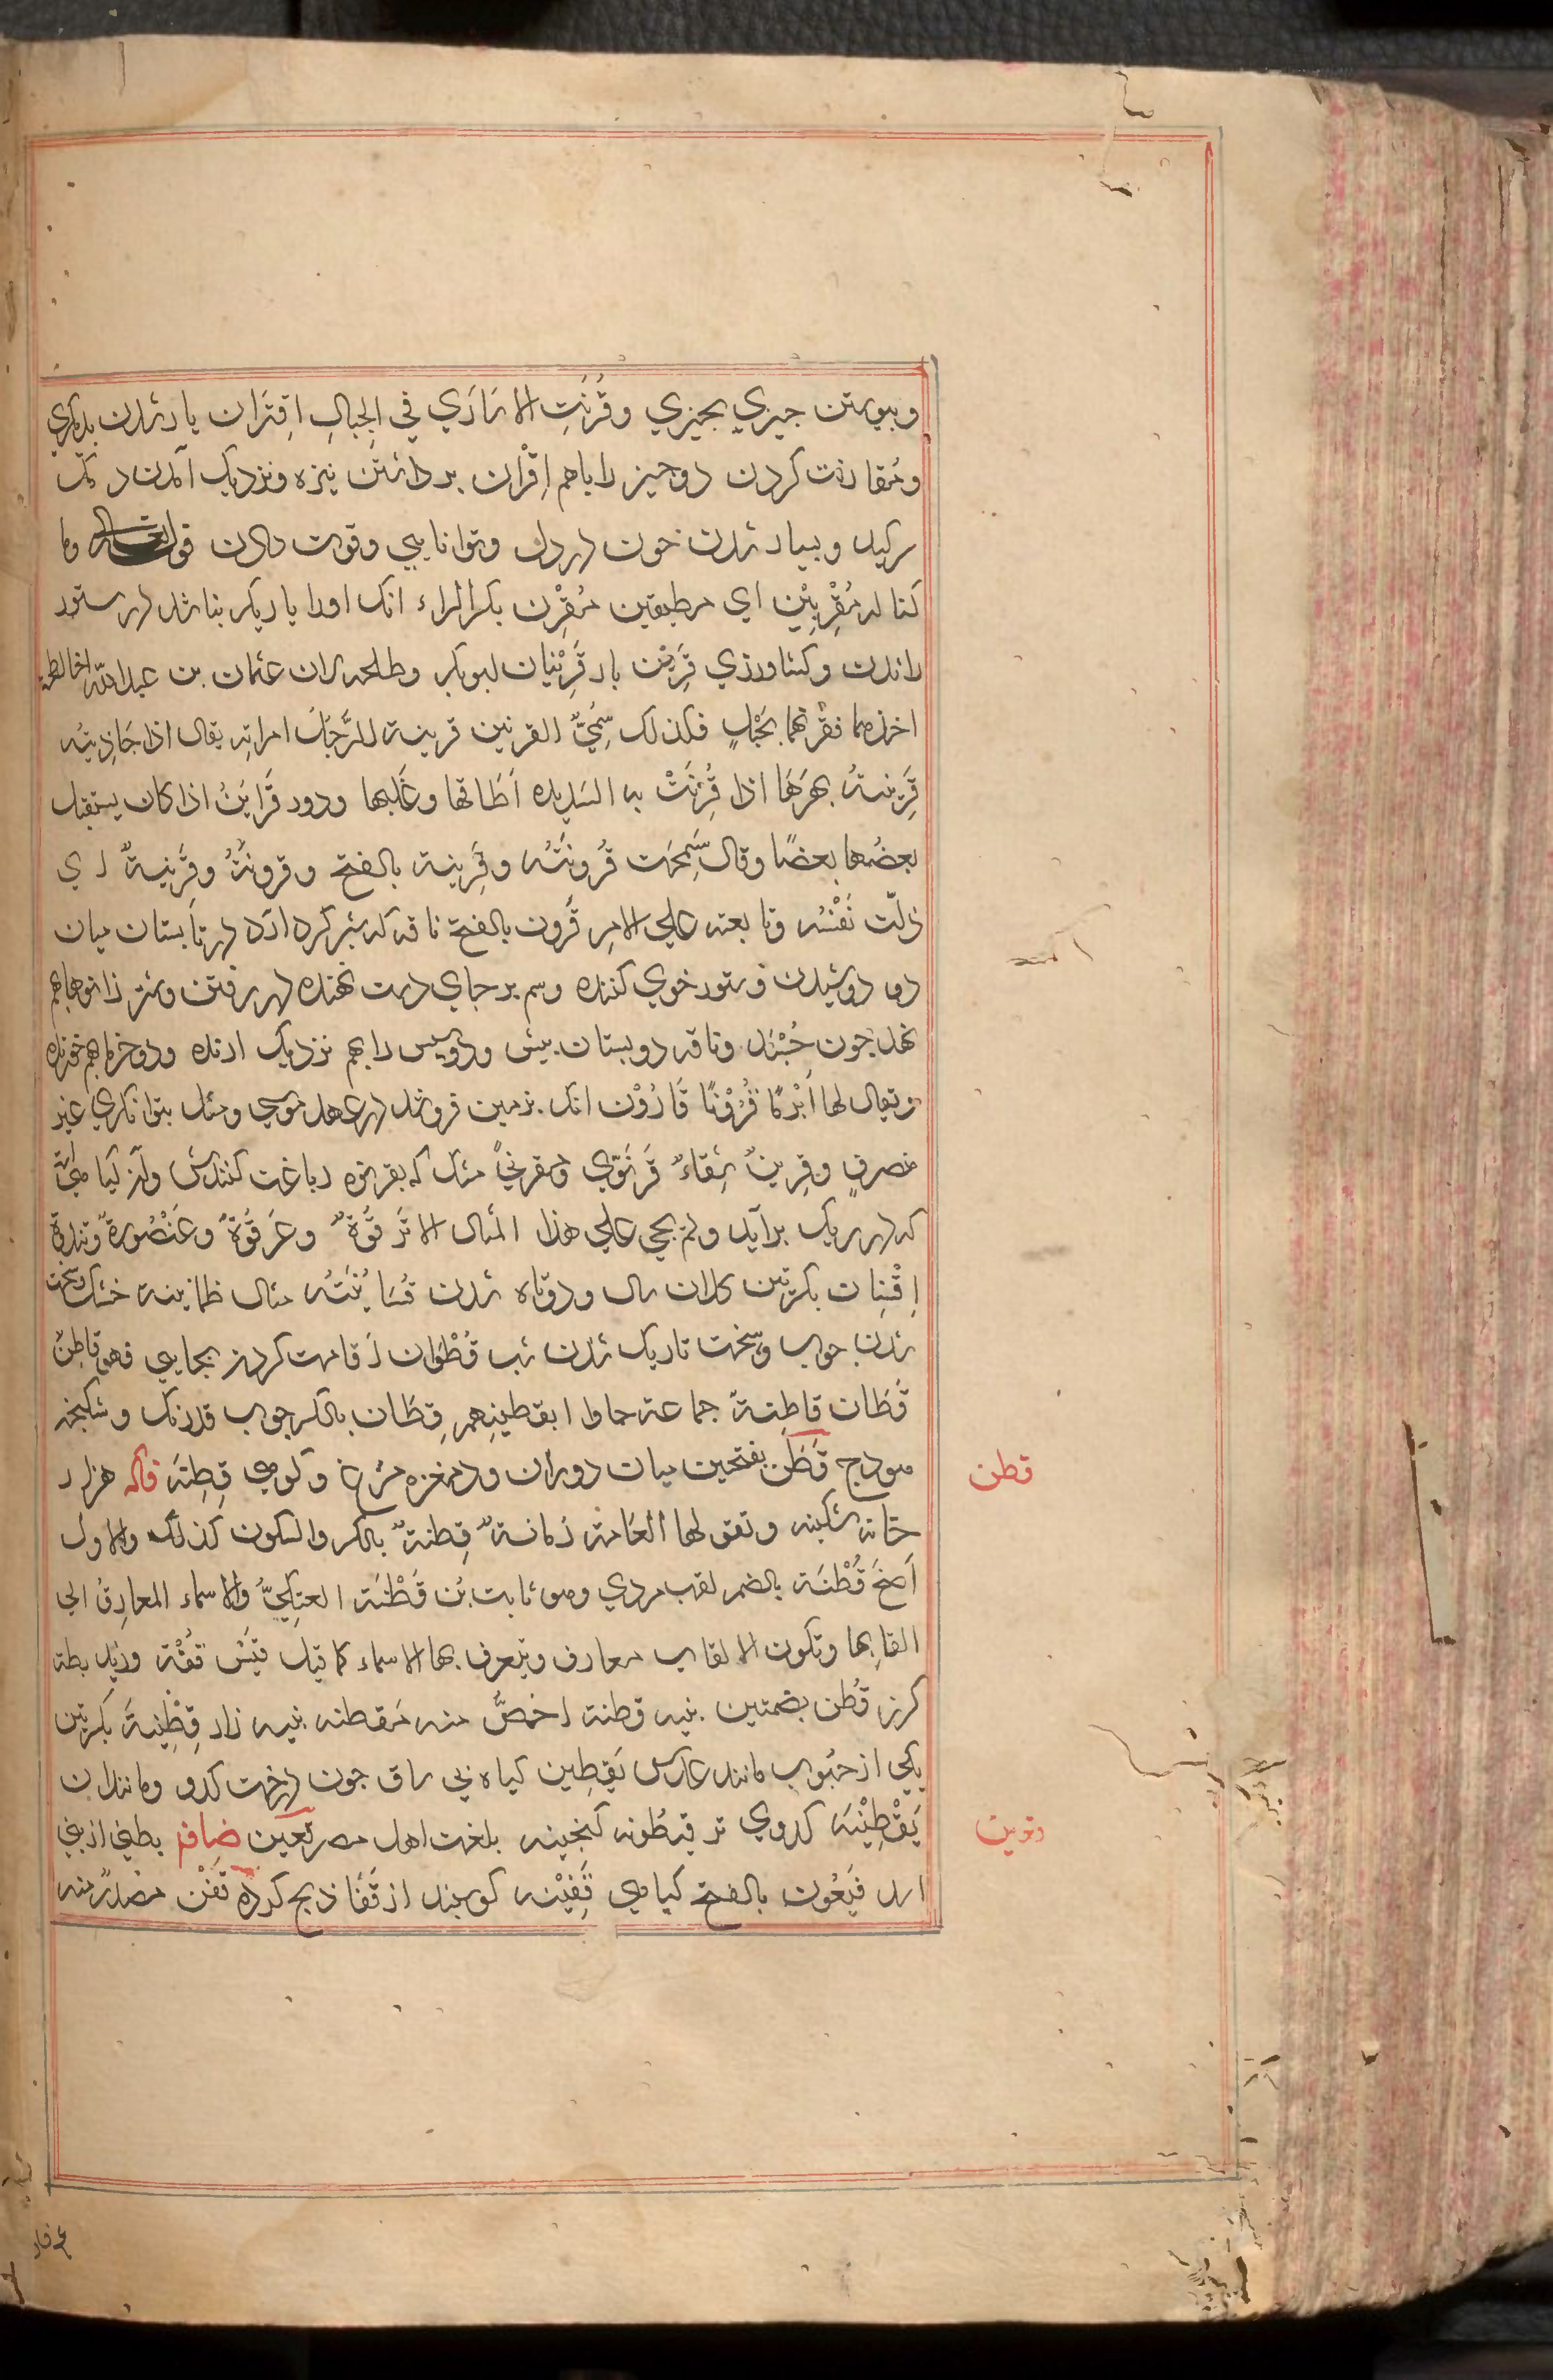 وپیوستن چیزي بچیزي وقُرِنَتِ الاسَارَي في الحِبالِ اِقتِرَان یار شدن بدیگري
ومُقارنت کردن دوچیز را باهم اِقْرَان برداشتن نیزه ونزدیک آمدن دمل
بسیار شدن خون در رك وتوانایي وقوت دادن قوله تعالی وما
کنا له مُقْرِنِیْن اي مطیقین مُقْرِن بکسرالراء انک اورا یاریکر نباشد در ستور
راندن وکشاورزي قَرِیْن یار قَرِیْنَان ابوبکر وطلحه لان عثمان بن عبدالله اخا طلحة
اخذهما فقرنهما بحَبْلٍ فلذلک سُمِّيَ القرنین قرینة الرَّجُل امراته یقال اذا جَاذبتْه
قَرِیْنتهُ بهرَهَا اذا قُرِنَتْ به الشدیدة اَطَاقها وغَلَبها ودور قَرَایَنُ اذا کان یستقبل
بعضُها بعضًا وقال سَمِحَت قُرُونَتُه وقَرِینة بالفتح وقرونَتُهُ وقَرِینَةٌ اي
ذلّت نَفْسُه وتابعته علي الامر قَرون بالفتح ناقه که شیر کرد ارد در تابستان میان
دو دوشیدن وستور خوي کننده وسم برجاي دست نهنده در رفتن وشتر زانوها باهم
نهد چون خُسْبَد وناقه دو پستان پیش ودو پس را بهم نزدیک ارنده ودو خرما بهم خورنده
ویقال لها اَبْرَمًا قُرُوْنًا قَارُوْن انک بزمین فروشد در عهد موسي ومثل بتوانکري غیر
منصرفٍ وقِرینٌ سِقاءٌ قَرنَوِي ومقرنيً مشک که بقرنوه دباغت کنندش وآن کیاهيَّ
که در ریک برآید ولم یجي علي هذا المثال الا تَرقُوَةٌ وعَرقُوَةٌ وعَنْصُوَةٌ وثندوة
اِقْسِنَان بکسرتین کلان سال ودوتاه شدن قُسَایُنَتُه مثال طمانینه خشک وسخت
شدن چوب وسخت تاریک شدن شب قُطُوان اقامت کردن بجایي فهو قاطِن
قُطَّان قاطِنةٌ جماعة جاوا بقطینِهم قِطَان بالکسر چوب قدرنک وشکنجه
هودج قَطَن بفتحین میان دوران ودمغزه مرغ وکوهي قِطِنَه فاکه هزار
خانه شکنبه وتقولها العَامة زمانةٌ قِطنةٌ بالکسر والسکون کذلک والاول
اَصَحّ قُطْنَه بالضم لقب مردي وهو ثابت بُن قَطْنَة العتِکيُّ والاسماء المعارِفُ الي
القابِها وتکون الالقاب معارف ویتعرف بها الاسماء کما قیل قیَس قفَّة وزید بطه
کرز قُطن بضمتین پنبه قطنة اخصُّ منه مَقطنه پنبه زار قِطِّنِیةَ بکسرتین
یکي از حُبوب مانند عدس یَقِطِین کیاه بي ساق چون درخت کدو ومانند ان
یَقْطِیْنَه کدوي تر قیطُونه کنجینه بلغت اهل مصر قَعَین ضاف بطني از بني
اسد قَیعُون بالفتح کیاهي قَفِیْنه کوسپند از قَفَا ذبح کرده قَفْن مصدرٌ منه
قطن